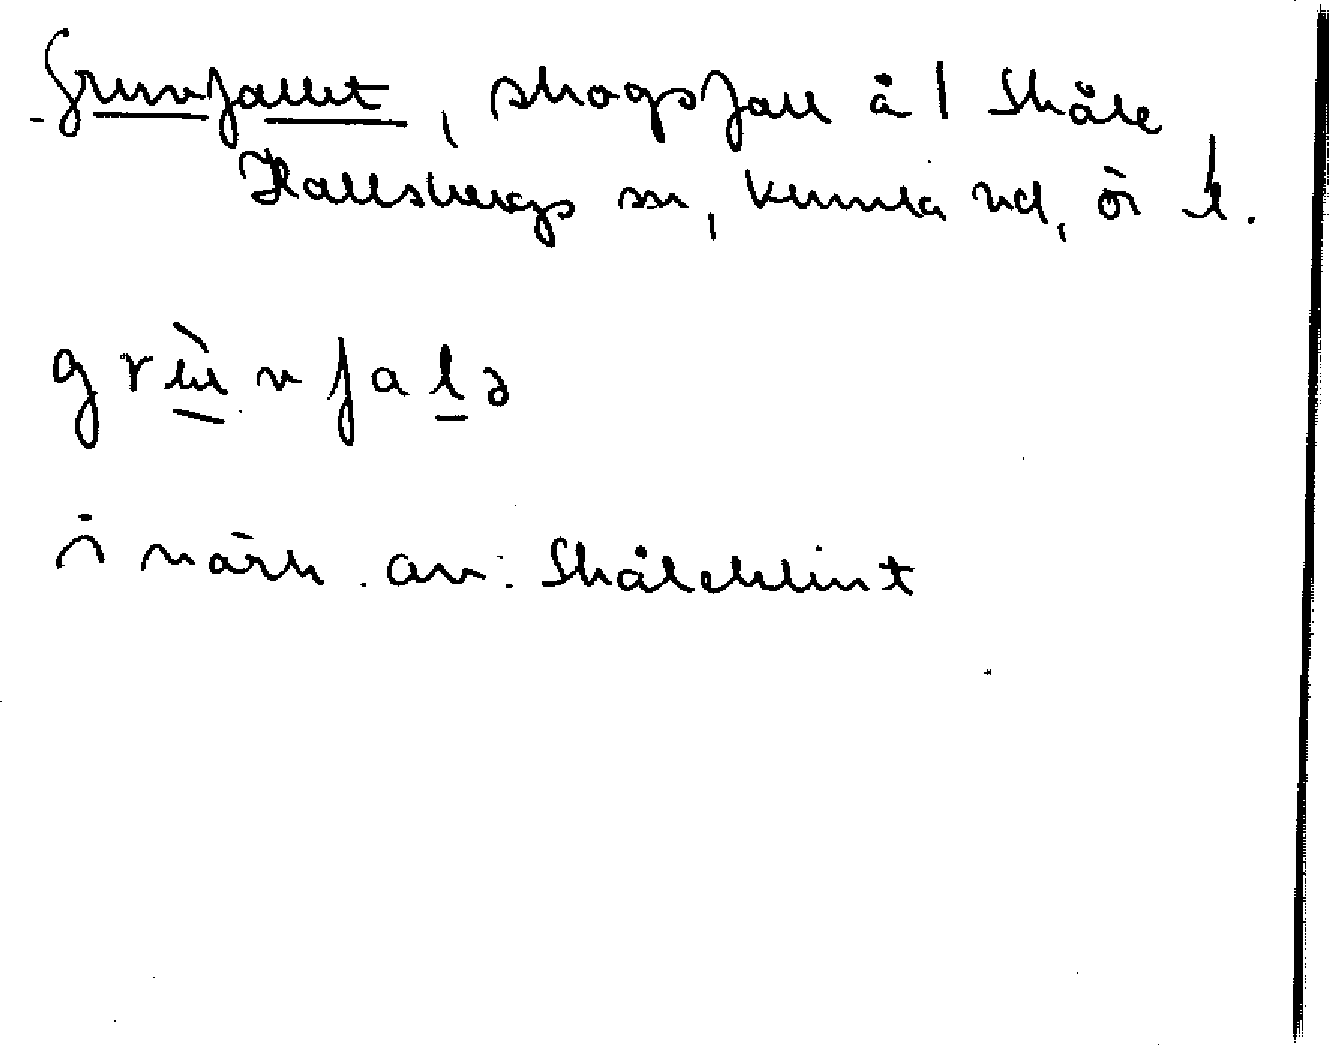 Gruvfallet, skogsfall å 1 Skåle
Hallsbergs sn, Kumla hd, ör l.
grùvfalə
i närh. av: Skåleklint